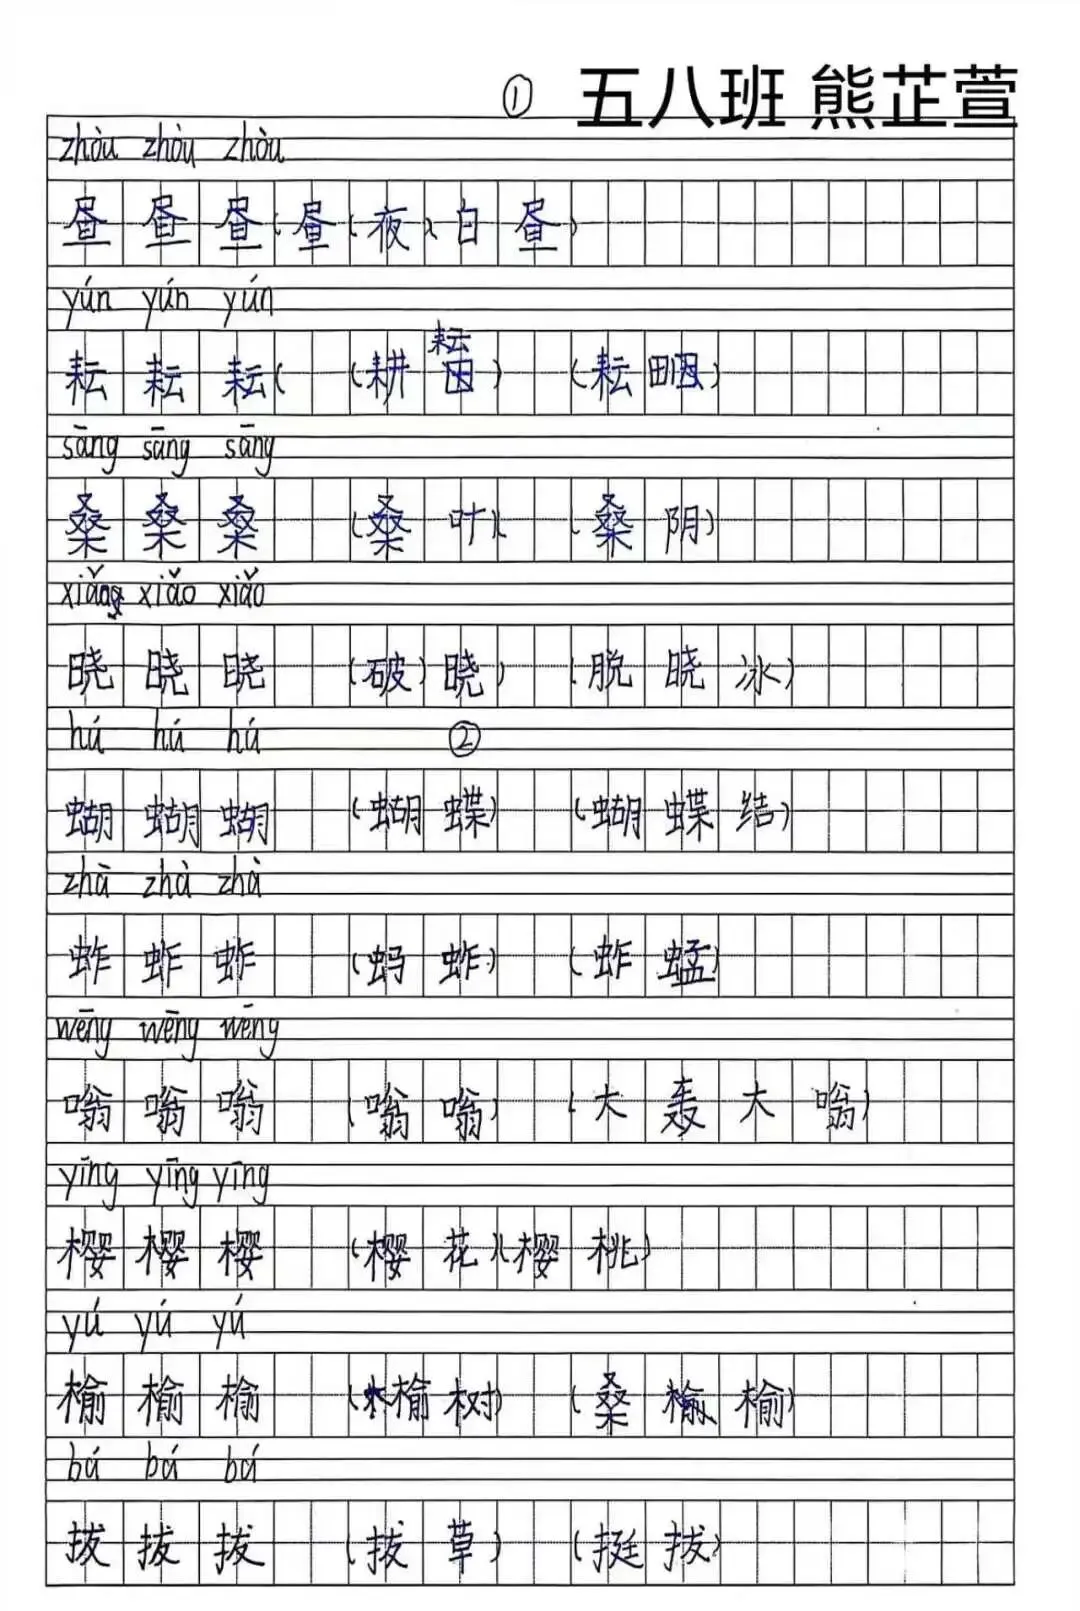 ① 五八班 熊芷萱
zhòu zhòu zhòu
昼 昼 昼 (昼夜) (白昼)
yún yún yún
耘 耘 耘 ( (耕耘) (耘田)
sāng sāng sāng
桑 桑 桑 (桑叶) (桑阴)
xiǎo xiǎo xiǎo
晓 晓 晓 (破晓) (脱晓冰)
hú hú hú ②
蝴 蝴 蝴 (蝴蝶) (蝴蝶结)
zhā zhà zhà
蚱 蚱 蚱 (蚂蚱) (蚱蜢)
wēng wēng wēng
嗡 嗡 嗡 (嗡嗡) (大轰大嗡)
yīng yīng yīng
樱 樱 樱 (樱花) (樱桃)
yú yú yú
榆 榆 榆 (榆树) (桑榆榆)
bá bá bá
拔 拔 拔 (拔草) (挺拔)